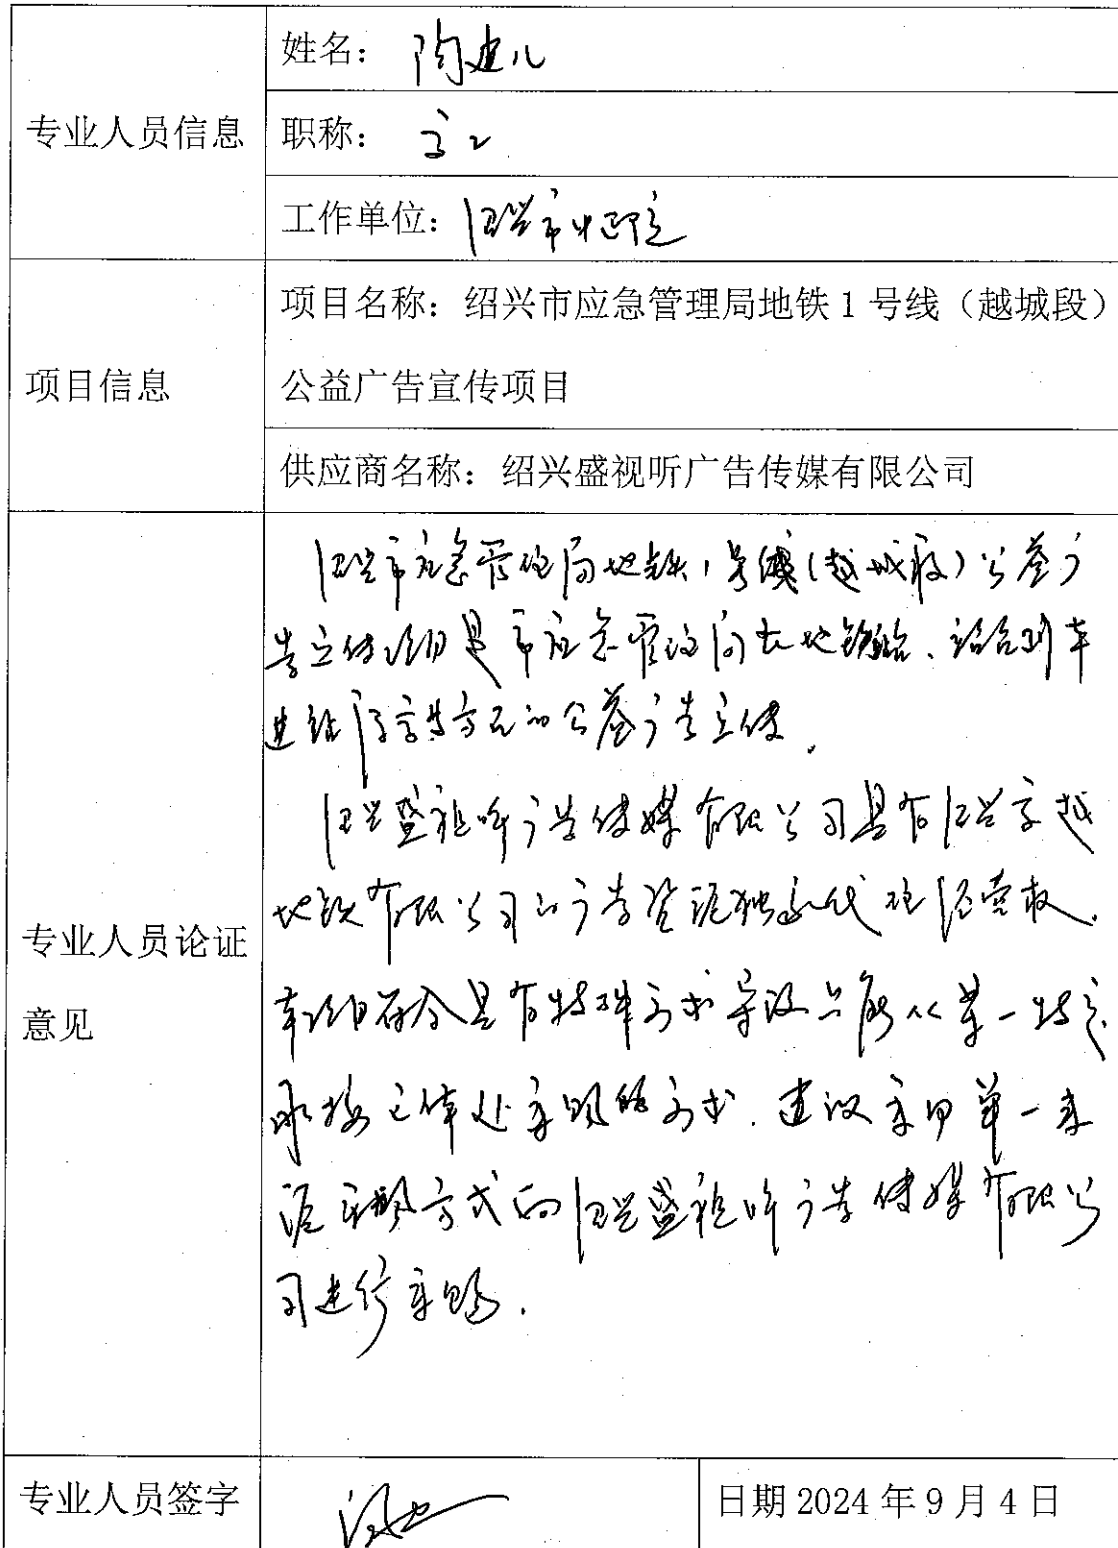 专业人员信息
姓名：陶建儿
职称：高工
工作单位：绍兴市
项目信息
项目名称：绍兴市应急管理局地铁1号线（越城段）
公益广告宣传项目
供应商名称：绍兴盛视听广告传媒有限公司
专业人员论证
意见
绍兴市应急管理局地铁1号线(越城段)公益广
告宣传项目是市应急管理局在地铁 列车
进 的公益广告宣传.
绍兴盛视听广告传媒有限公司具有绍兴京越
地铁有限公司的广告资源独家代理经营权.
本项目符合具有特殊要求导致只能从某一特定
采购的要求.建议采用单一来
源采购方式向绍兴盛视听广告传媒有限公
司进行采购.
专业人员签字
日期 2024 年 9 月 4 日